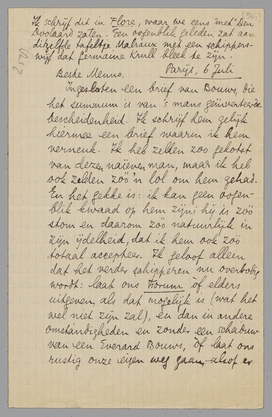 Ik schrijf dit in Flore, waar we eens met Den
Doolaard zaten. Een oogenblik geleden zat aan
ditzelfde tafeltje Malraux met een schippers-
wijf dat Germaine Krull bleek te zijn.
Parijs, 6 Juli
Beste Menno,
Ingesloten een brief van Bouws, die
het summum is van 's mans geïnventeerde
bescheidenheid. Ik schrijf hem gelijk
hiermee een brief waarin ik hem
verneuk. Ik heb zelden zoo gekotst
van dezen naïeven man, maar ik heb
ook zelden zoo'n lol om hem gehad.
En het gekke is: ik kan geen oogen-
blik kwaad op hem zijn; hij is zoo
stom en daarom zoo natuurlijk in
zijn ijdelheid, dat ik hem ook zoo
totaal accepteer. Ik geloof alleen
dat het verder schipperen nu overbodig
wordt: laat ons Forum òf elders
uitgeven, als dat mogelijk is (wat het
wel niet zijn zal), en dan in andere
omstandigheden en zonder een schaduw
van een Everard Bouws, òf laat ons
rustig onze eigen weg gaan, alsof er